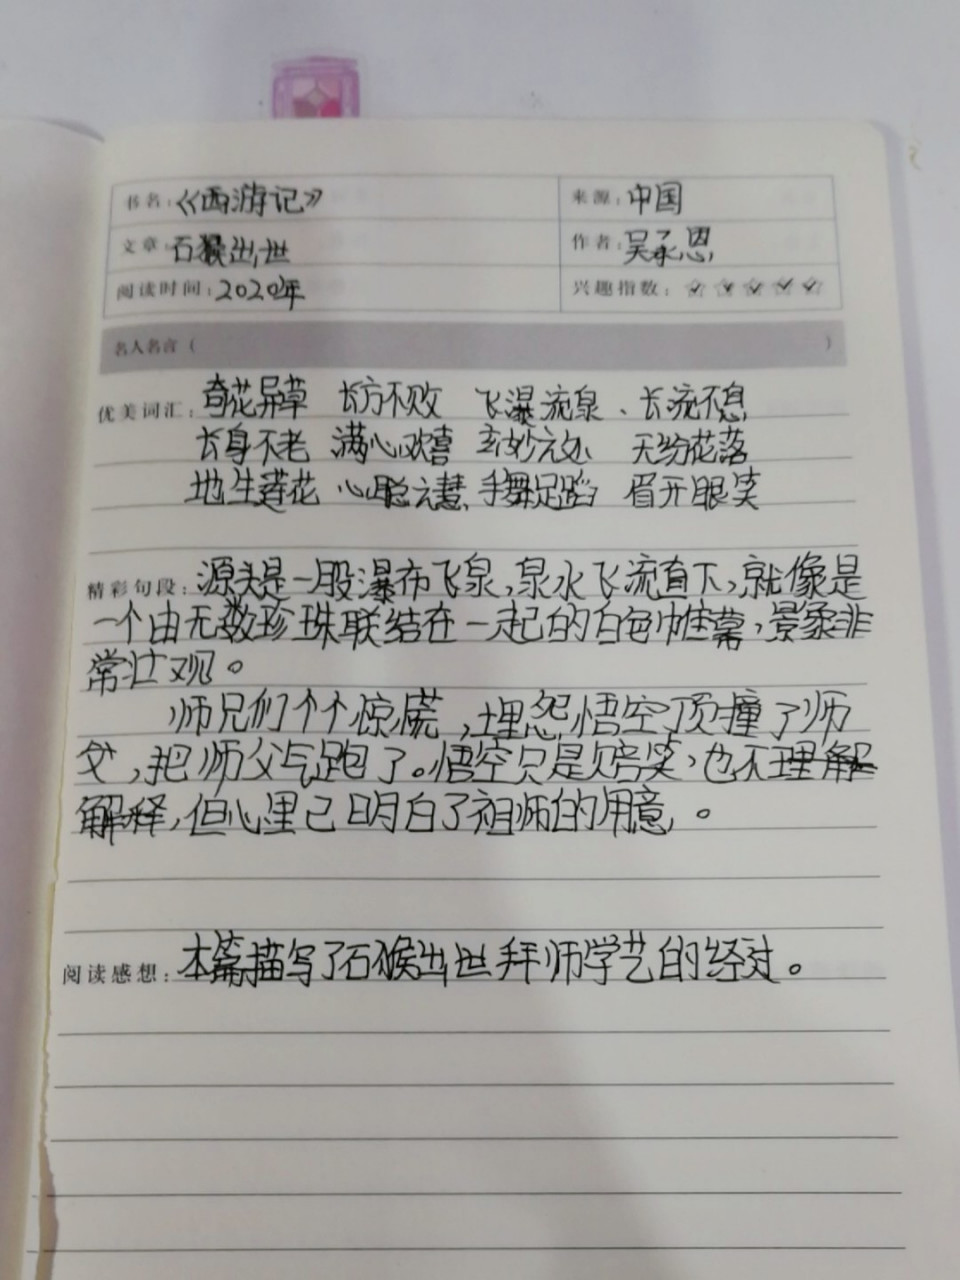 书名：《西游记》 来源：中国
文章：石猴出世 作者：吴承恩
阅读时间：2020年 兴趣指数：
名人名言（ ）
优美词汇：奇花异草 长方不败 飞瀑流泉、长流不息
长身不老 满心欢喜 玄妙之处 天纷花落
地生莲花 心聪之慧 手舞足蹈 眉开眼笑
精彩句段：源头是一股瀑布飞泉，泉水飞流直下，就像是
一个由无数珍珠联结在一起的白色帷幕，景象非
常壮观。
师兄们个个惊慌，埋怨悟空顶撞了师
父，把师父气跑了。悟空只是赔笑，也不理解
解释，但心里已明白了祖师的用意。
阅读感想：本篇描写了石猴出世拜师学艺的经过。